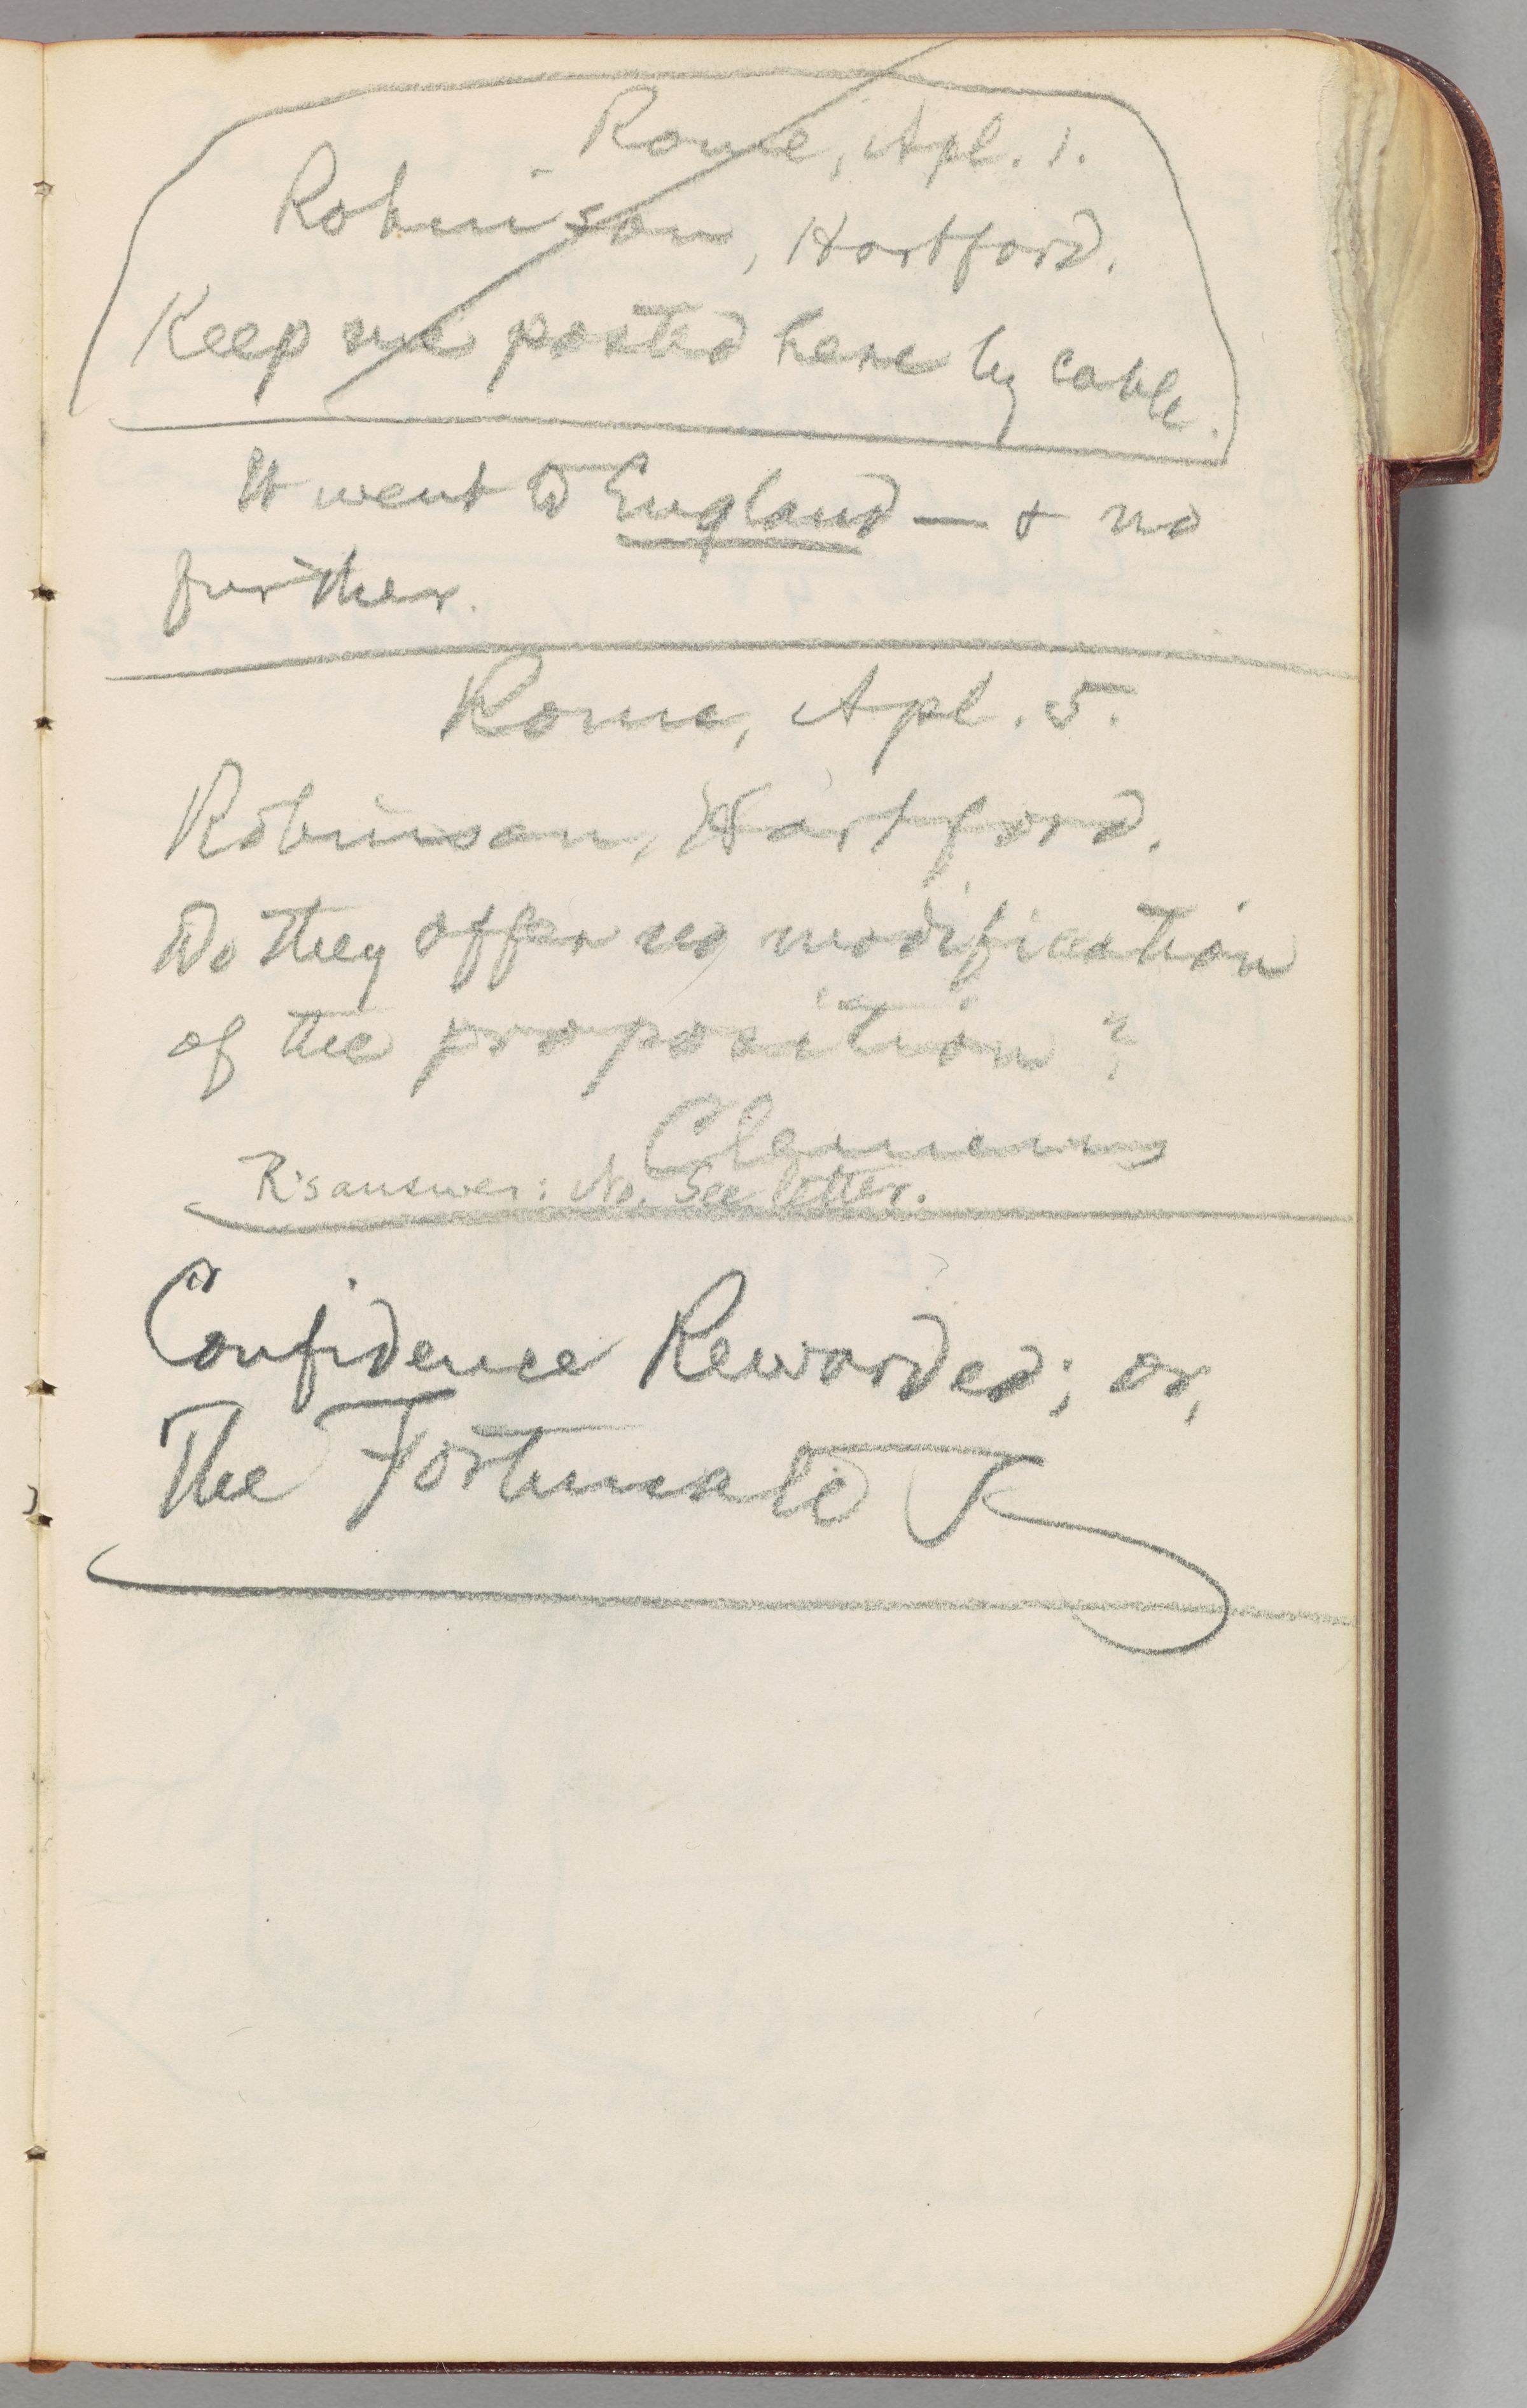 Rome, Apl. 1.
Robinson, Hartford.
Keep me posted here by cable.
It went to England — & no
further.
Rome, Apl. 5.
Robinson, Hartford.
Do they offer no modification
of the proposition?
Clemens
R's answer: No. See letter.
Confidence Rewarded; or,
The Fortunate